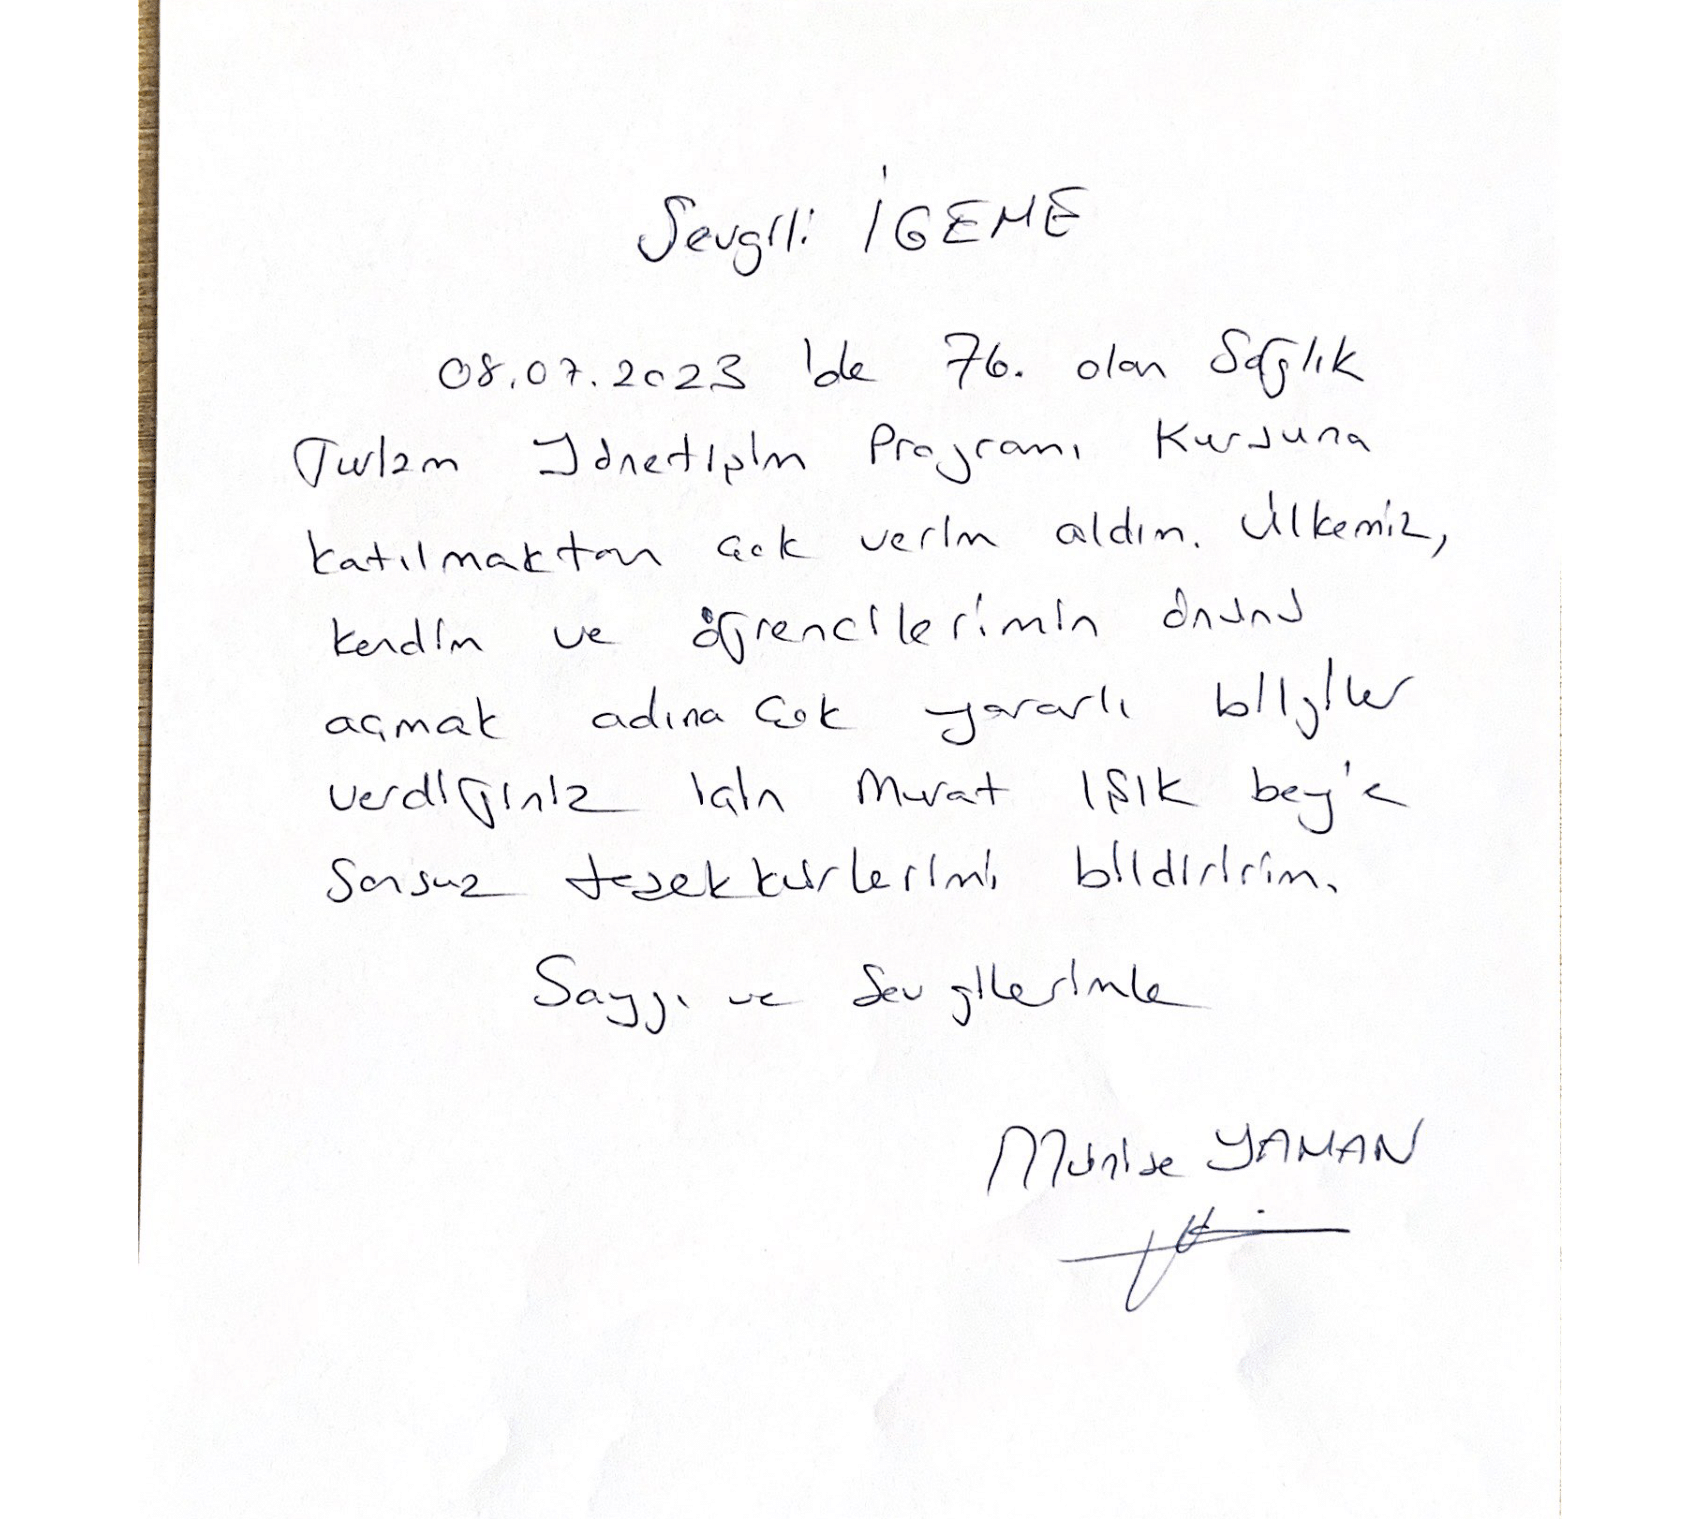 Sevgili İGEME
08.07.2023 'de 76. olan Sağlık
Turizm Yönetişim Programı Kursuna
katılmaktan çok verim aldım. Ülkemiz,
kendim ve öğrencilerimin önünü
açmak adına çok yararlı bilgiler
verdiğiniz için Murat IŞIK bey'e
Sonsuz teşekkürlerimi bildiririm.
Saygı ve Sevgilerimle
Münise YAMAN